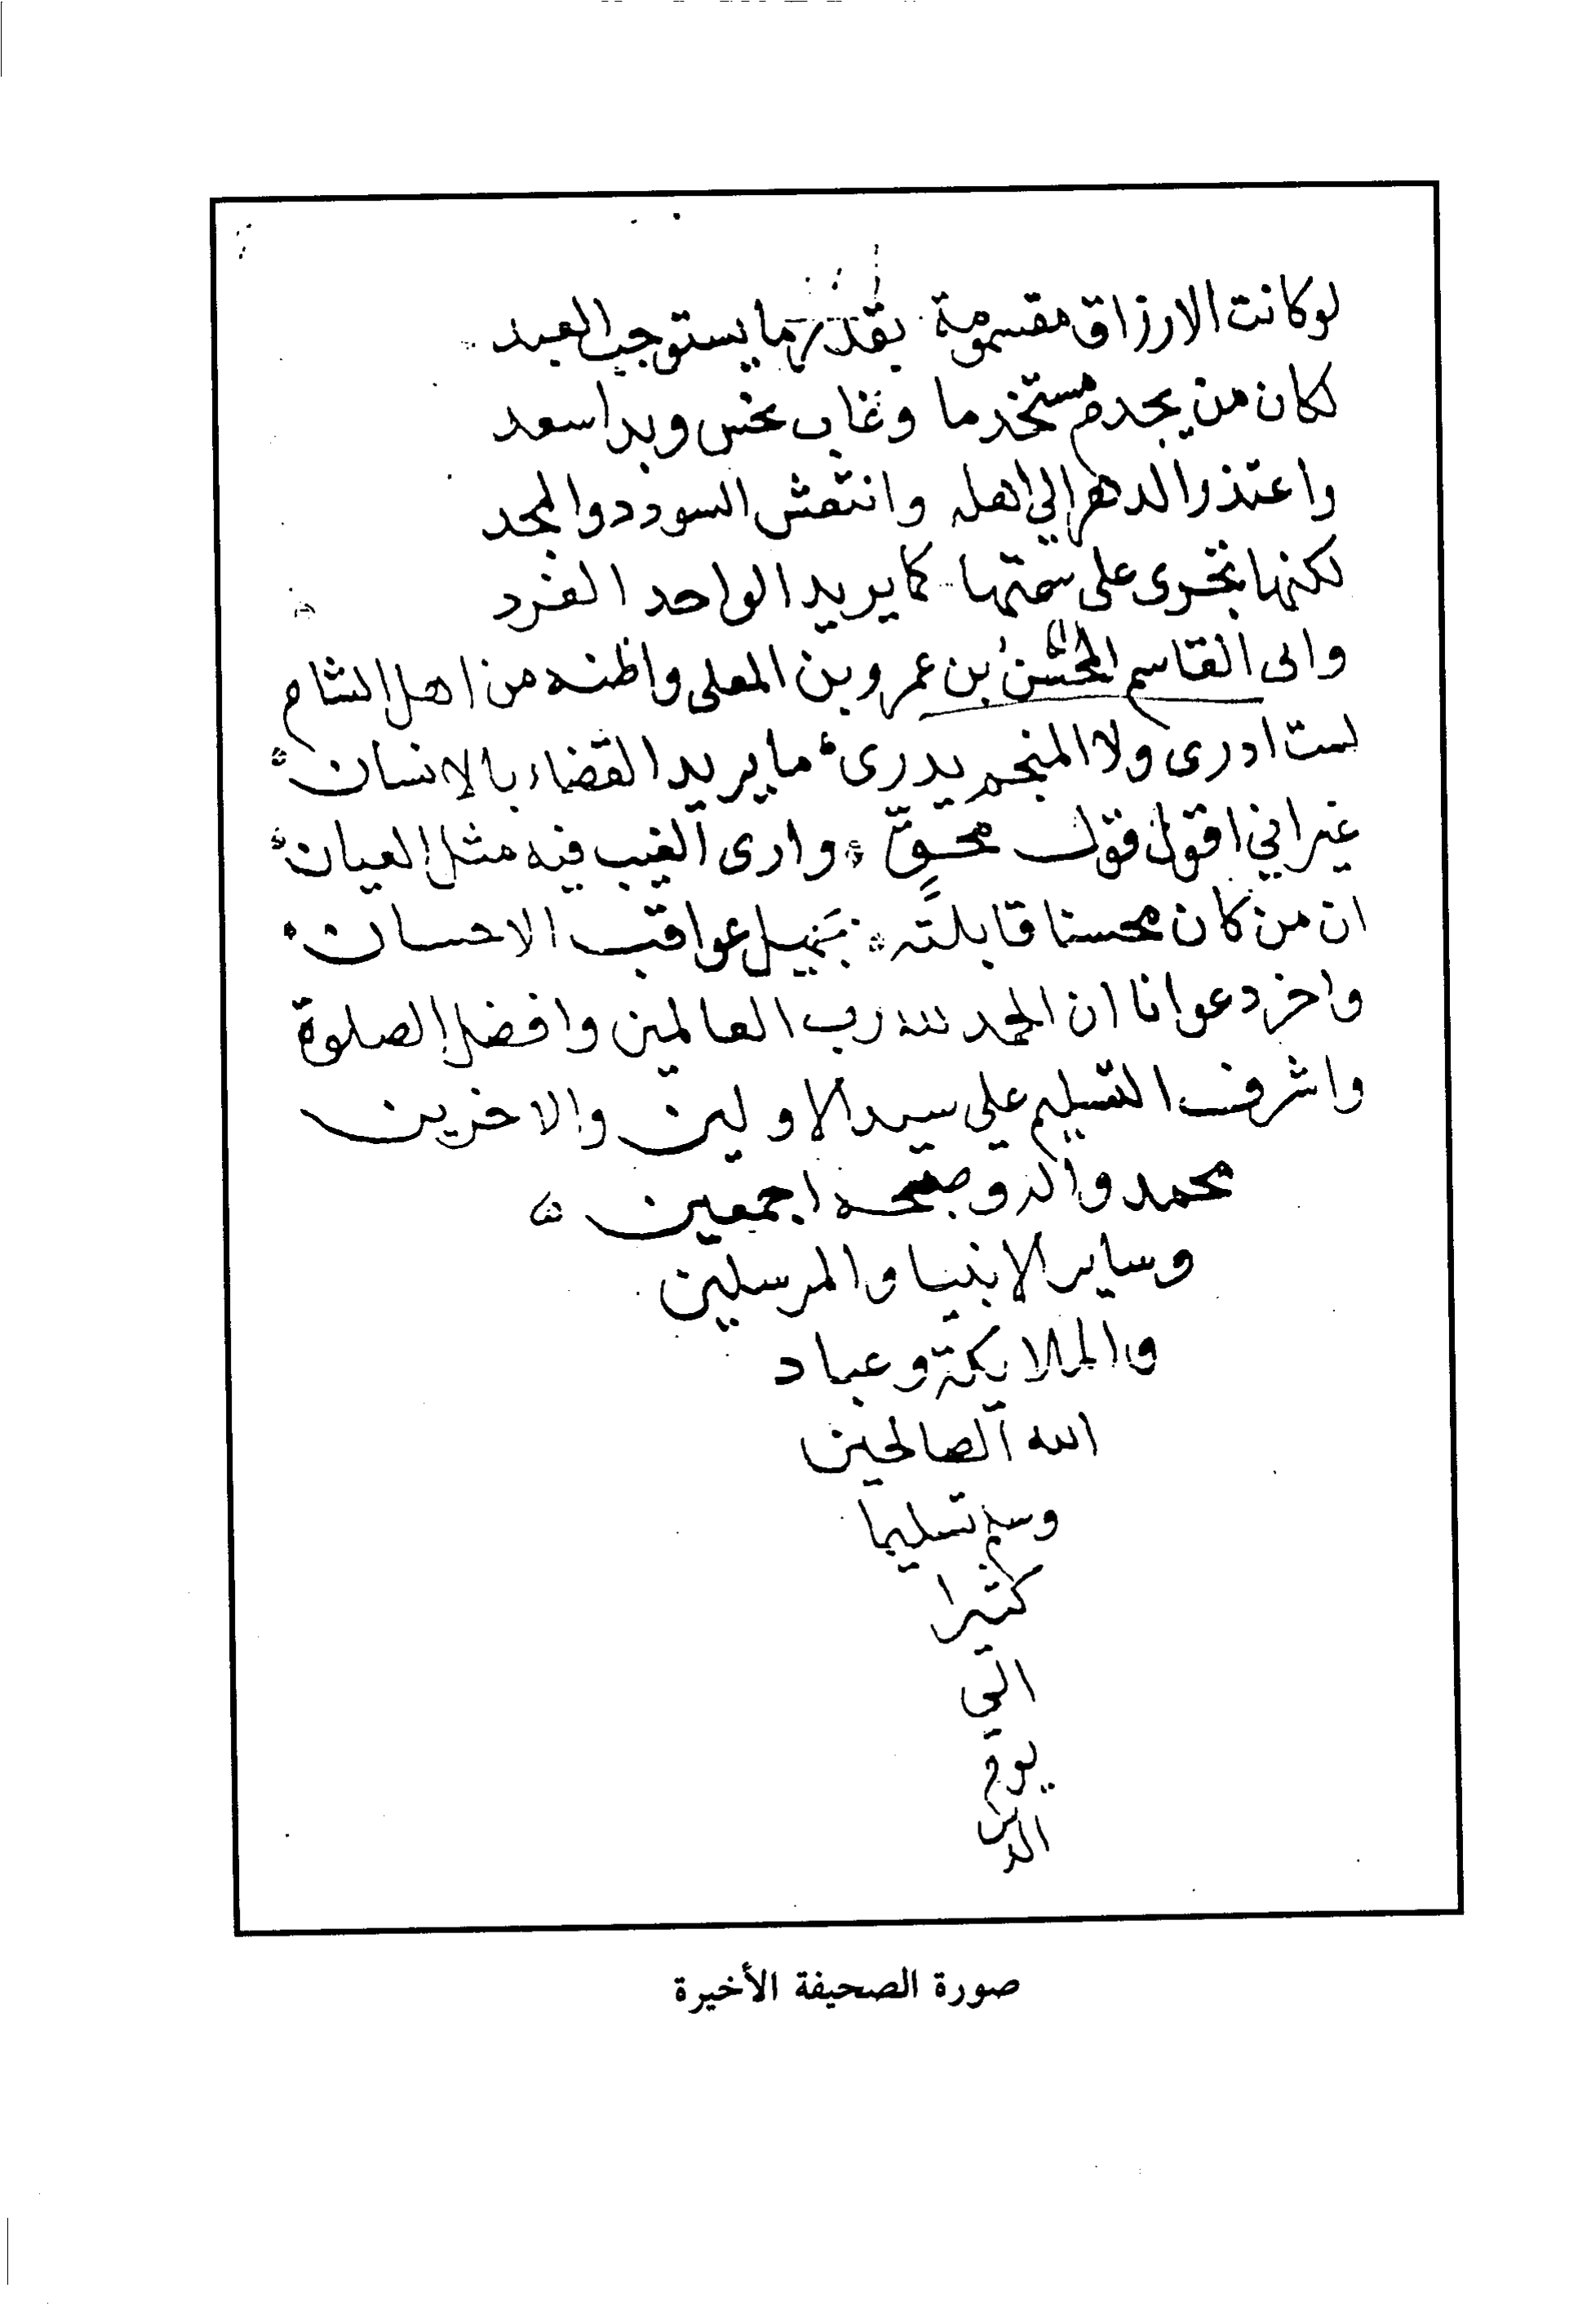 لوكانت الارزاق مقسومة بقدر ما يستوجب العبد
لكان من يخدم مستخدما وغاب نحس وبدا سعد
واعتذر الدهر الى اهله وانتعش السودد والمجد
لكنها تجرى على سمتها كما يريد الواحد الفرد
وابى القاسم المحسن بن عمرو بن المعلى واظنه من اهل الشام
لست ادرى ولا المنجم يدرى * ما يريد القضاء بالانسان *
غير اني اقول قول محقّ * وارى الغيب فيه مثل العيان *
ان من كان محسنا قابلته * بجميل عواقب الاحسان *
واخر دعوانا ان الحمد لله رب العالمين وافضل الصلوة
واشرف التسليم على سيد الاولين والاخرين
محمد واله وصحبه اجمعين ۞
وساير الانبيا والمرسلين
والملايكة وعباد
الله الصالحين
وسلم تسليما
كثيرا
الى
يوم
الدين
صورة الصحيفة الأخيرة